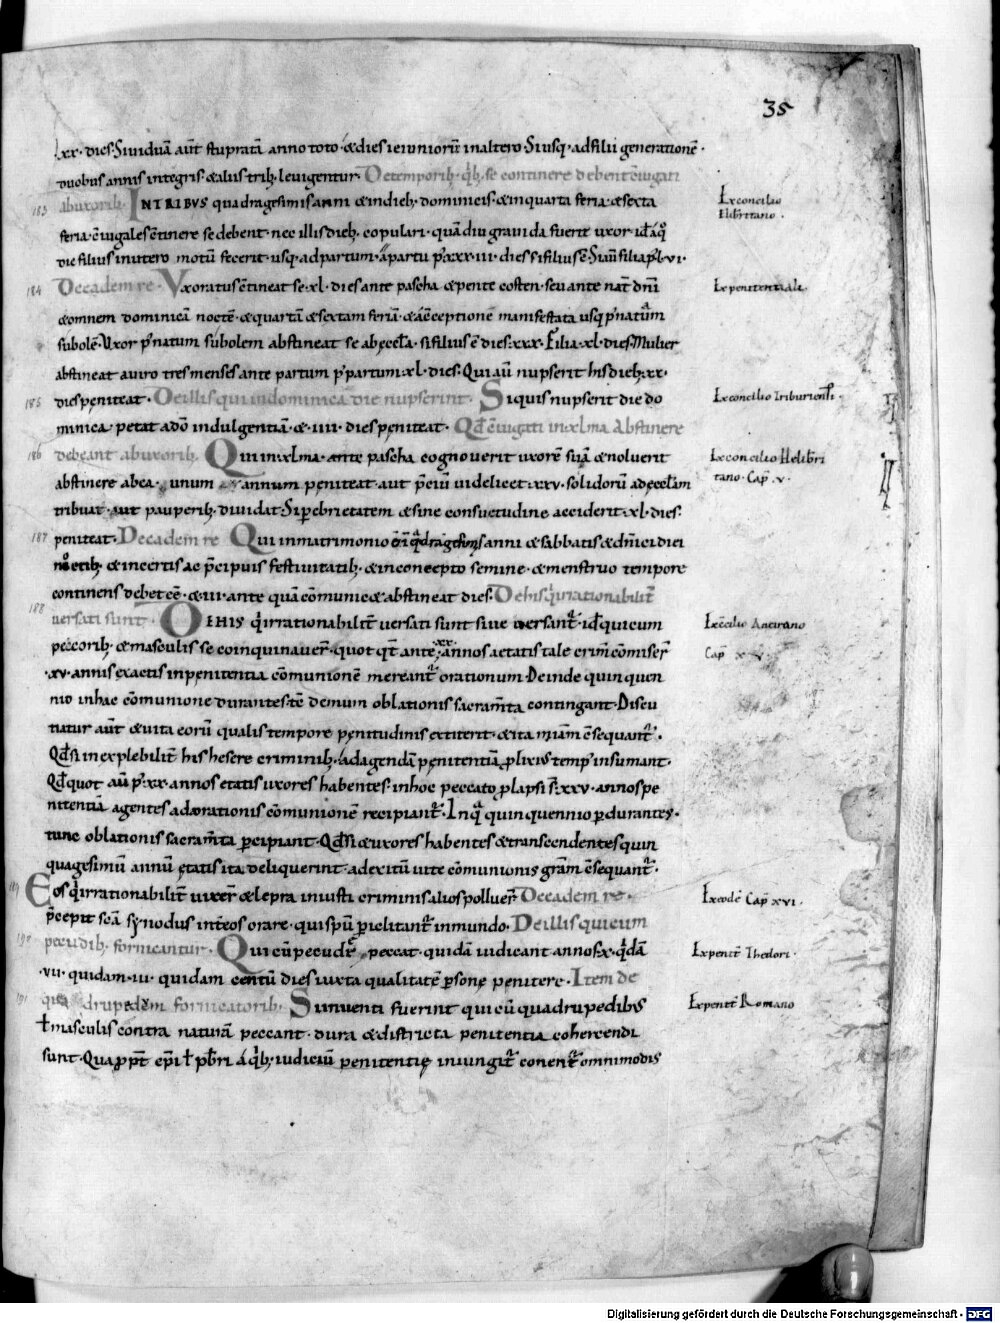 35
xx. dies. Si viduā aut̄ stupratā anno toto. & dies ieiuniorū in altero. Si usq. ad filii generationē.
duobus annis integris. & aliis trib; levigentur. De temporib; qb; se continere debent c̄iugati
183 ab uxorib; INTRIBUS quadragesimis anni & in dieb; dominicis. & in quarta feria. & sexta
Ex concilio
Elibritano.
feria. c̄iugales c̄tinere se debent. nec illis dieb; copulari. quādiu gravida fuerit uxor. id̄ a q̊
die filius in utero motū fecerit. usq. ad partum. a partu p̄. xxxiii. dies si filius ē. Sin̄ filia p̄. lvi.
184 De eadem re. Uxoratus c̄tineat se. xl. dies ante pascha & pentecosten. seu ante nat̄ dn̄i
Ex penitentiali.
& omnem dominicā noctē. & quartā & sextam feriā. & a c̄ceptione manifestata usq. p̄ natum
subolē. Uxor p̄ natum subolem abstineat se ab ęccła. si filius ē dies. xxx. Filia. xl. dies. Mulier
abstineat a viro tres menses ante partum. p̄ partum. xl. dies. Qui aū nupserit his dieb; xx.
185 dies pęniteat. De illis qui in dominica die nupserint. Siquis nupserit die do
Ex concilio Triburiensi.
minica. petat a dō indulgentiā. & .iiii. dies pęniteat. Qd̄ c̄iugati in xlma abstinere
186 debeant ab uxorib; Qui in xlma. ante pascha cognoverit uxorē suā & noluerit
Ex concilio Helibri
tano. Cap̄. v.
abstinere ab ea. unum annum pęniteat. aut p̄ciū videlicet. xxv. solidorū ad ęccłam
tribuat. aut pauperib; dividat. Si p ebrietatem & sine consuetudine acciderit. xl. dies.
187 peniteat. De eadem re Qui in matrimonio quadragesimis anni & sabbatis & dn̄ici diei
noctib; & in certis ac p̄cipuis festivitatib; & in concepto semine. & menstruo tempore
continens debet c̄e. & .iii. ante quā cōmunicet abstineat dies. De his q̇ irrationabilit̄
188 versati sunt. DE HIS q̇ irrationabilit̄ versati sunt sive versant̄. id̄ qui cum
Ex c̄cilio Ancirano
Cap̄ xv.
peccorib; & masculis se coinquinaver̄. quot qt̄ ante xx. annos aetatis tale crim̄ cōmiser̄
.xv. annis exactis in pęnitentia cōmunionē mereant̄ orationum. Deinde quinquen
nio in hac cōmunione durantes. tc̄ demum oblationis sacram̄ta contingant. Discu
tiatur aut̄ & vita eorū qualis tempore pęnitudinis extiterit. & ita m̄iam c̄sequant̄.
Qd̄ si inexplebilit̄ his hesere criminib; ad agendā pęnitentiā plixis temp̄ insumant.
Qd̄quot aū p̄. xx. annos etatis uxores habentes. in hoc peccato plapsi s̄. xxv. annos pe
nitentiā agentes ad orationis cōmunionē recipiant̄. In q̇ quinquennio p durantes.
tunc oblationis sacram̄ta percipiant. Qd̄ si & uxores habentes & transcendentes quin
quagesimū annū ętatis ita deliquerint. ad exitū vitę cōmunionis gram̄ c̄sequant̄.
189 Eos q̇ irrationabilit̄ vixer̄ & lepra iniusti criminis alios polluer̄ De eadem re.
Ex eodē Cap̄ xvi.
p̄cepit sc̄a synodus int̄ eos orare. qui spū piclitant̄ in mundo. De illis qui cum
190 pecudib; fornicantur. Qui cū pecude peccat. quidā iudicant annos. x. q̇dā
Ex penit̄ Theodori.
.vii. quidam. iii. quidam centū dies iuxta qualitatē psonę penitere. Item de
191 quadrupedem fornicatorib; Si inventi fuerint qui cū quadrupedibus
Ex penit̄ Romano
ł masculis contra naturā peccant. dura & districta penitentia cohercendi
sunt. Quapp̄t ep̄i ł p̄br̄i a q̇b; iudiciū penitentię iniungit̄ conent̄ omnimodis
Digitalisierung gefördert durch die Deutsche Forschungsgemeinschaft - DFG